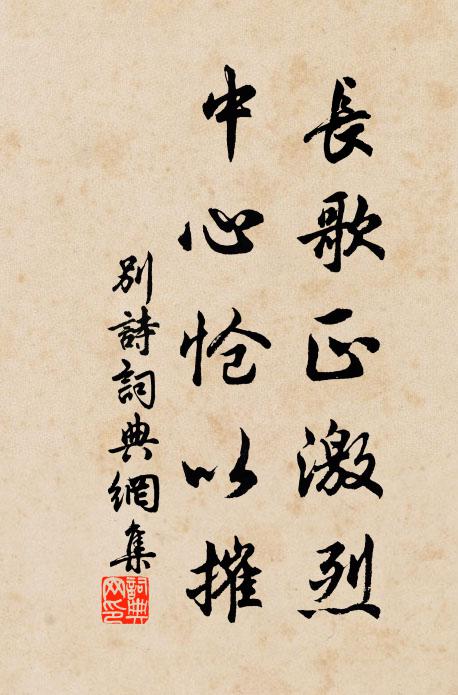 長歌正激烈
中心愴以摧
別詩詞典網集
詞典网印